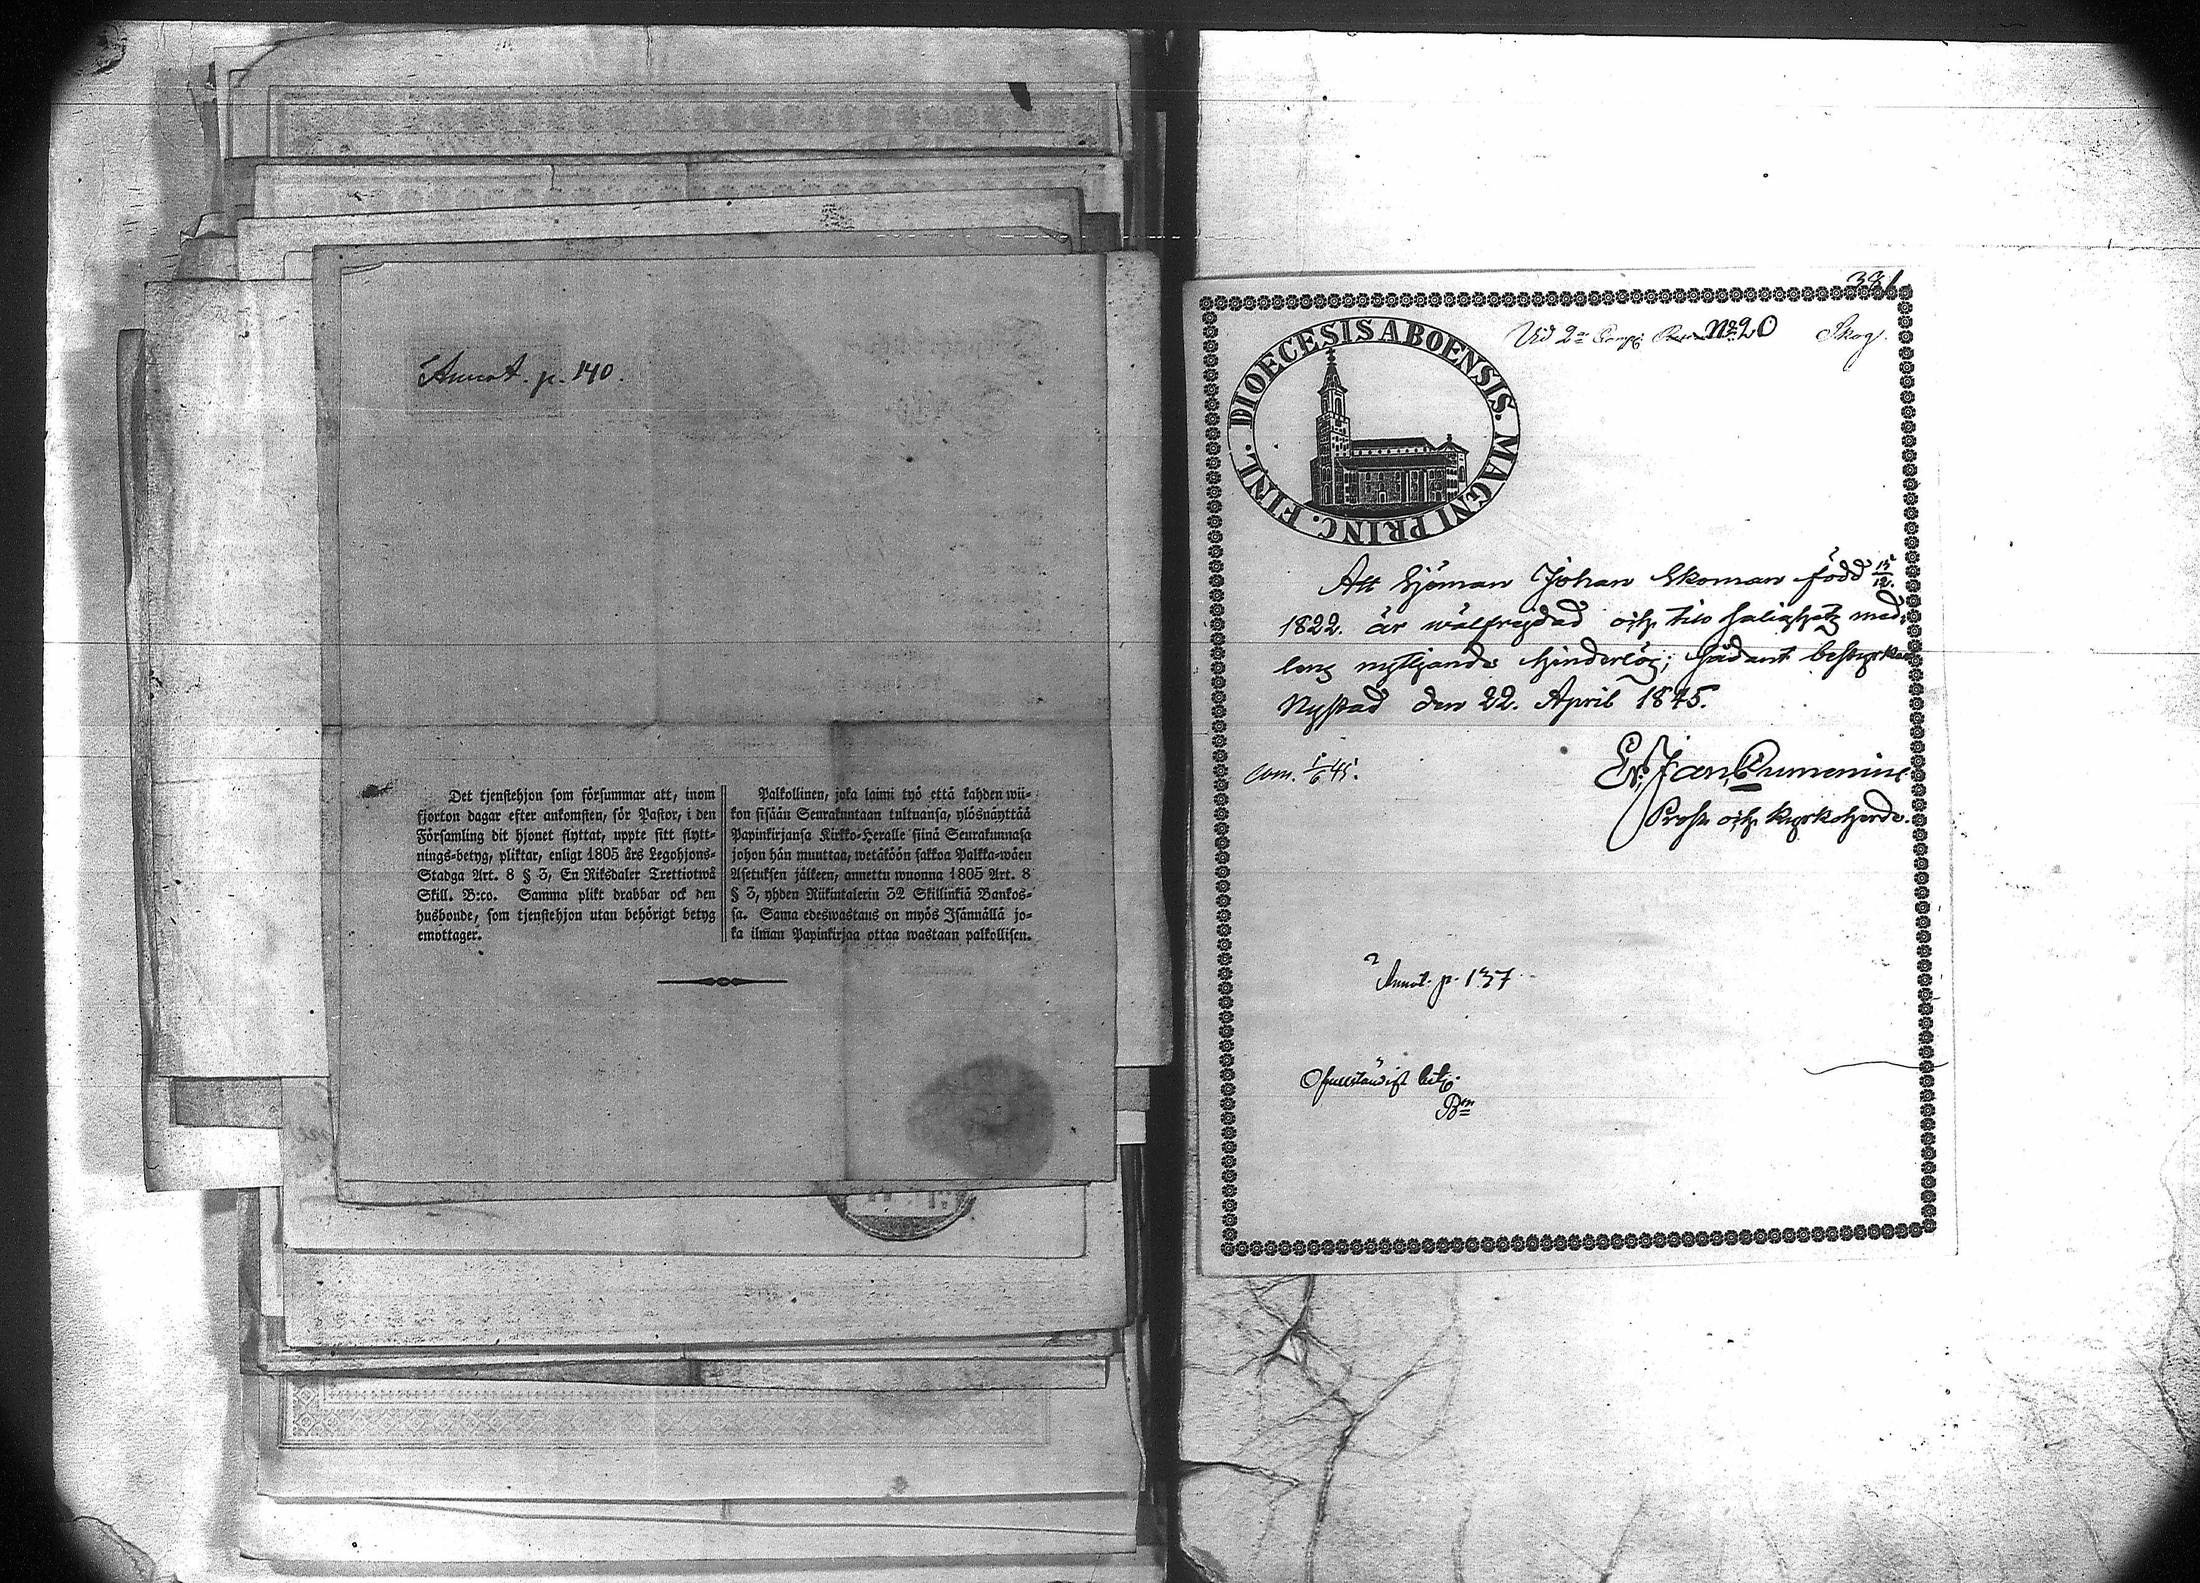 Annot. p. 140.
Det tjenstehjon som försummar att, inom
fjorton dagar efter ankomsten, för Pastor, i den
Församling dit hjonet flyttat, uppte sitt flytt-
nings-betyg, pliktar, enligt 1805 års Legohjons-
Stadga Art. 8 § 3, En Riksdaler Trettiotwå
Skill. B:co. Samma plikt drabbar ock den
husbonde, som tjenstehjon utan behörigt betyg
emottager.
Palkollinen, joka laimi työ että kahden wii-
kon sisään Seurakuntaan tultuansa, ylösnäyttää
Papinkirjansa Kirkko-Heralle siinä Seurakunnasa
johon hän muuttaa, wetäköön sakkoa Palkka-wäen
Asetuksen jälkeen, annettu wuonna 1805 Art. 8
§ 3, yhden Riikintalerin 32 Skillinkiä Bankos-
sa. Sama edeswastaus on myös Isännällä jo-
ka ilman Papinkirjaa ottaa wastaan palkollisen.
381.
Vid 2a Comp: No 20 Skog.
DIOECESIS ABOENSIS. MAGNI PRINC. FINL.
Att Sjöman Johan Ekoman född 15/12.
1822. är wälfrejdad och til salighetz med-
lens nyttjande hinderlös; sådant bestyrkes
Nystad den 22. April 1845.
Er. Joh.
Prost och Kyrkoherde.
kom. 1/6 45.
Annot. p. 137
Ofullständigt bet:
Bm